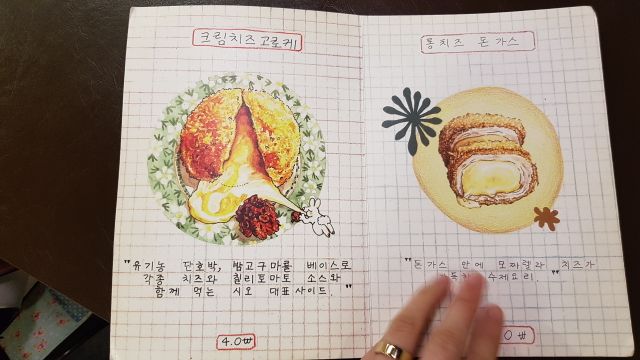 크림치즈고로케
"유기농 단호박, 밤고구마를 베이스로
각종 치즈와 칠리토마토 소스와
함께 먹는 시오 대표사이드."
4.0₩
통치즈 돈가스
"돈가스 안에 모짜렐라 치즈가
수제요리."
0₩